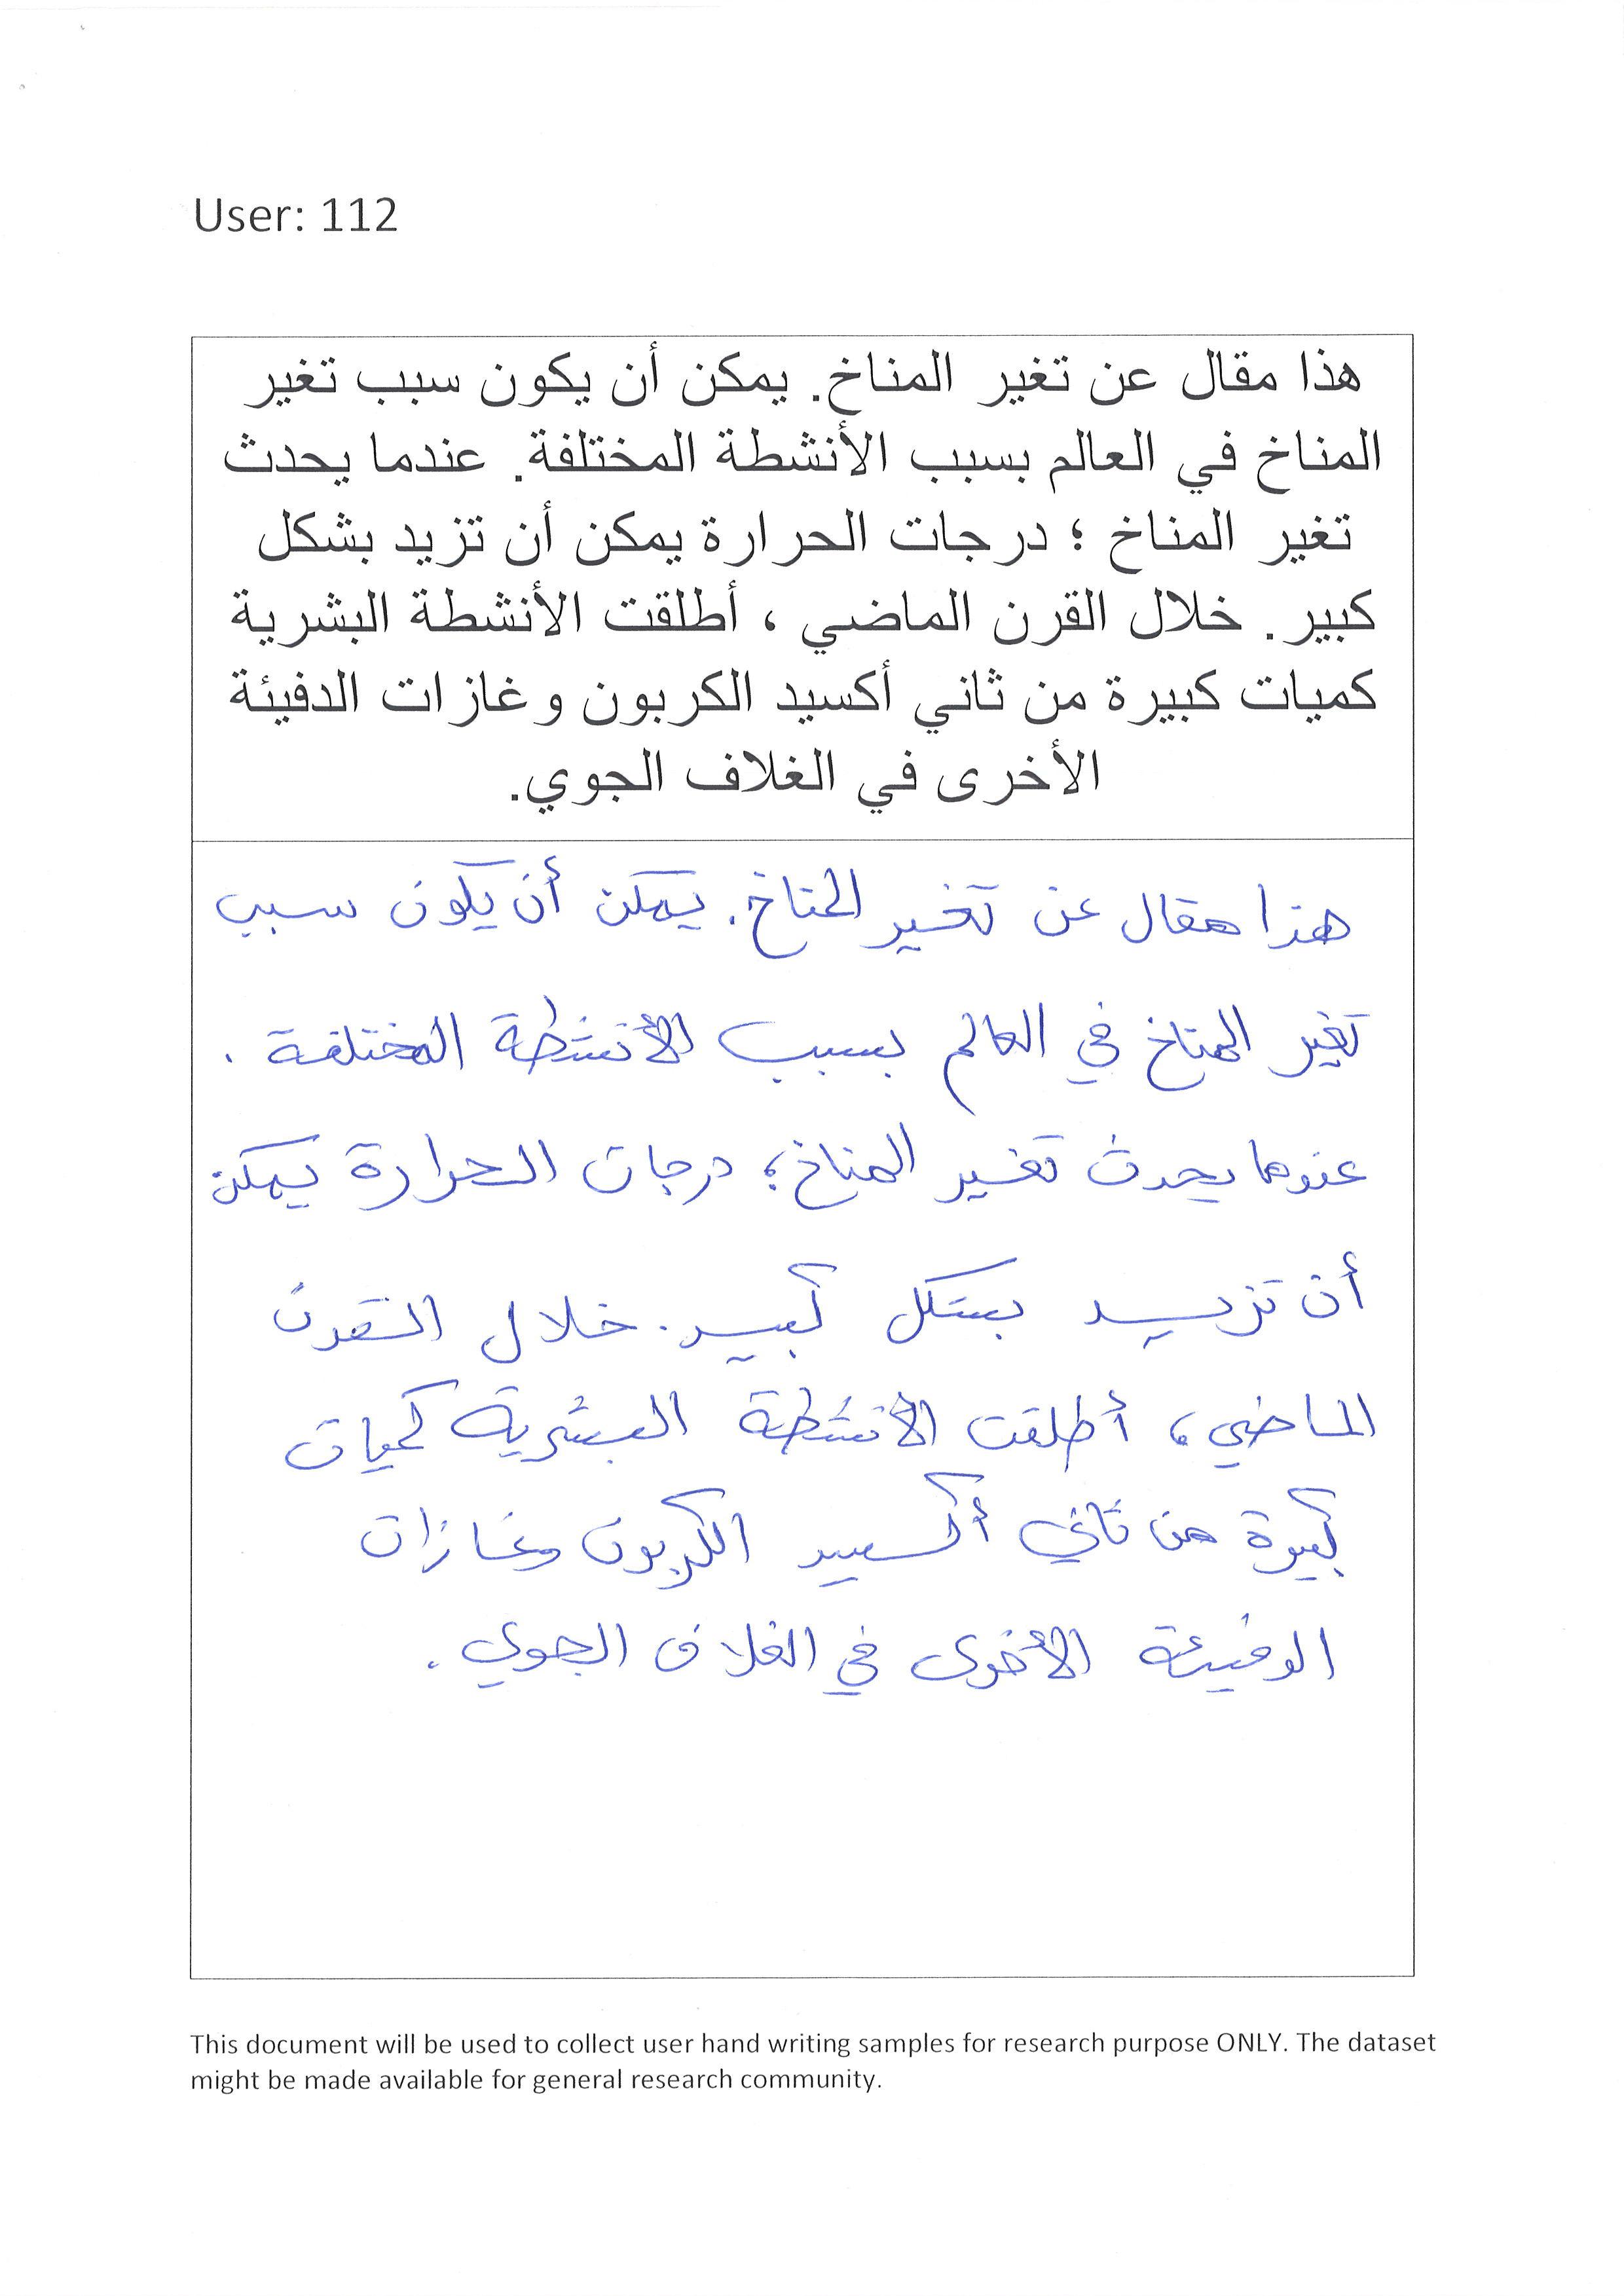 User: 112
هذا مقال عن تغير المناخ. يمكن أن يكون سبب تغير
المناخ في العالم بسبب الأنشطة المختلفة. عندما يحدث
تغير المناخ ؛ درجات الحرارة يمكن أن تزيد بشكل
كبير. خلال القرن الماضي ، أطلقت الأنشطة البشرية
كميات كبيرة من ثاني أكسيد الكربون وغازات الدفيئة
الأخرى في الغلاف الجوي.
هذا مقال عن تغير المناخ. يمكن أن يكون سبب
تغير المناخ في العالم بسبب الأنشطة المختلفة .
عندما يحدث تغير المناخ؛ درجات الحرارة يمكن
أن تزيد بشكل كبير. خلال القرن
الماضي، أطلقت الأنشطة البشرية كميات
كبيرة من ثاني أكسيد الكربون وغازات
الدفيئة الأخرى في الغلاف الجوي .
This document will be used to collect user hand writing samples for research purpose ONLY. The dataset
might be made available for general research community.